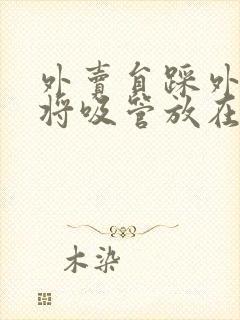 外賣自踩外
將吸管放在
木染